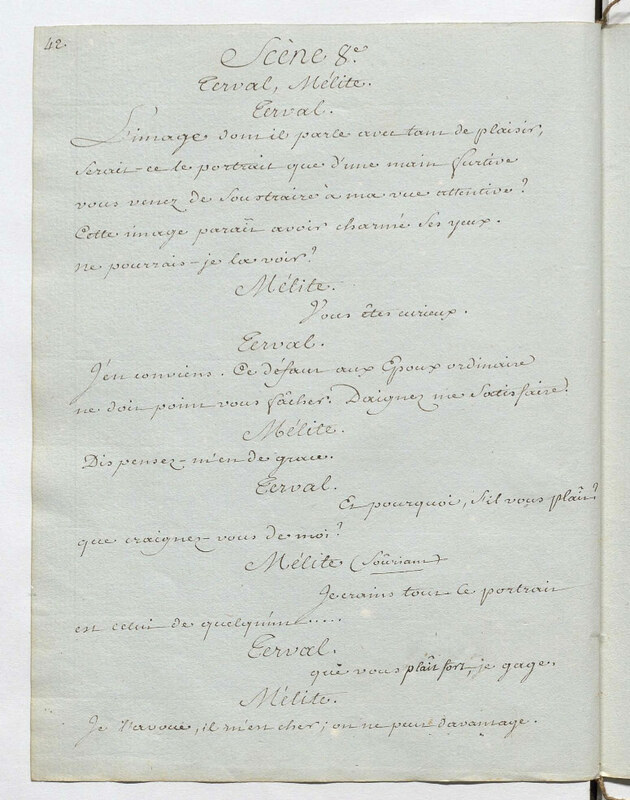 42.
Scène 8.e
Terval, Mélite.
Terval.
L'image dont il parle avec tant de plaisir,
serait-ce le portrait que d'une main furtive
vous venez de soustraire à ma vue attentive?
Cette image paraît avoir charmé ses yeux.
ne pourrais-je la voir?
Mélite.
Vous êtes curieux.
Terval.
J'en conviens. Ce défaut aux Epoux ordinaire
ne doit point vous fâcher. Daignez me satisfaire.
Mélite.
Dispensez-m'en de grace.
Terval.
Et pourquoi, s'il vous plaît?
que craignez-vous de moi?
Mélite (souriant)
Je crains tout le portrait
est celui de quelqu'un.....
Terval.
que vous plaît fort, je gage.
Mélite.
Je l'avoue, il m'est cher; on ne peut davantage.